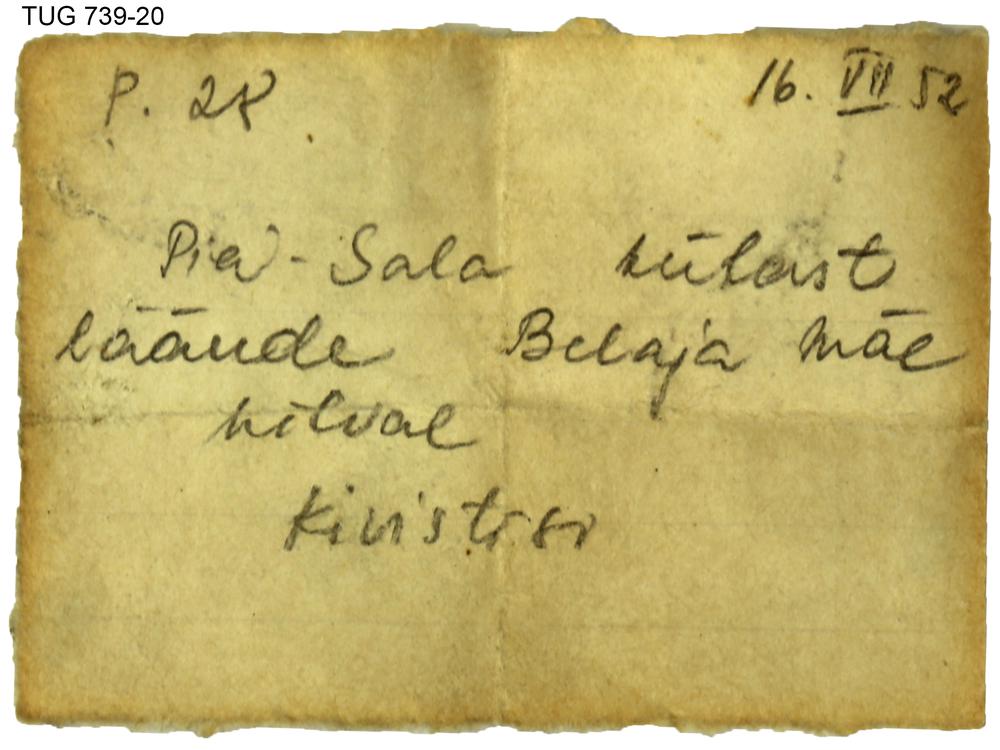 TUG 739-20
P. 28
16. VII 52
Piĕ-Sala külast
läände Belaja mäe
nõlval
Kivistisi